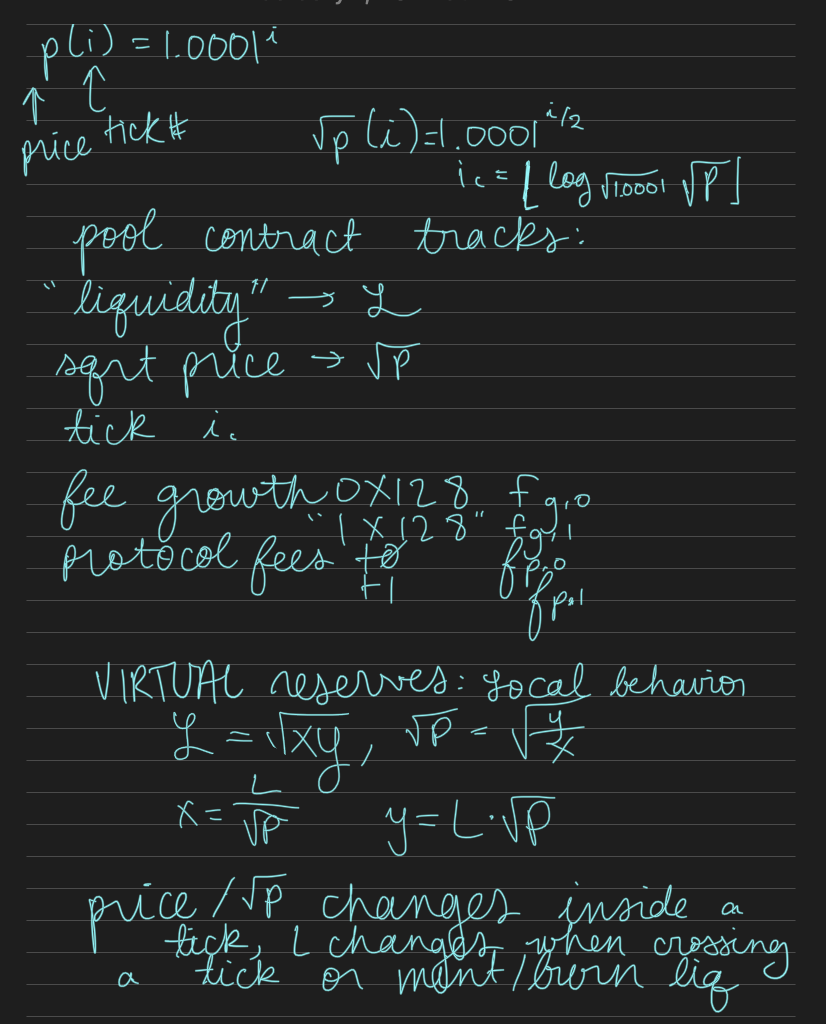 p(i) = 1.0001^i
↑ ↑
price tick#
√p(i)=1.0001^{i/2}
i_c = ⌊log_{√1.0001} √P⌋
pool contract tracks:
"liquidity" → L
sqrt price → √P
tick i_c
fee growth 0X128 f_{g,0}
"1X128" f_{g,1}
protocol fees t0 f_{p,0}
t1 f_{p,1}
VIRTUAL reserves: local behavior
L = √xy, √P = √(y/x)
x = L/√P y = L·√P
price/√P changes inside a
tick, L changes when crossing
a tick or mint/burn liq